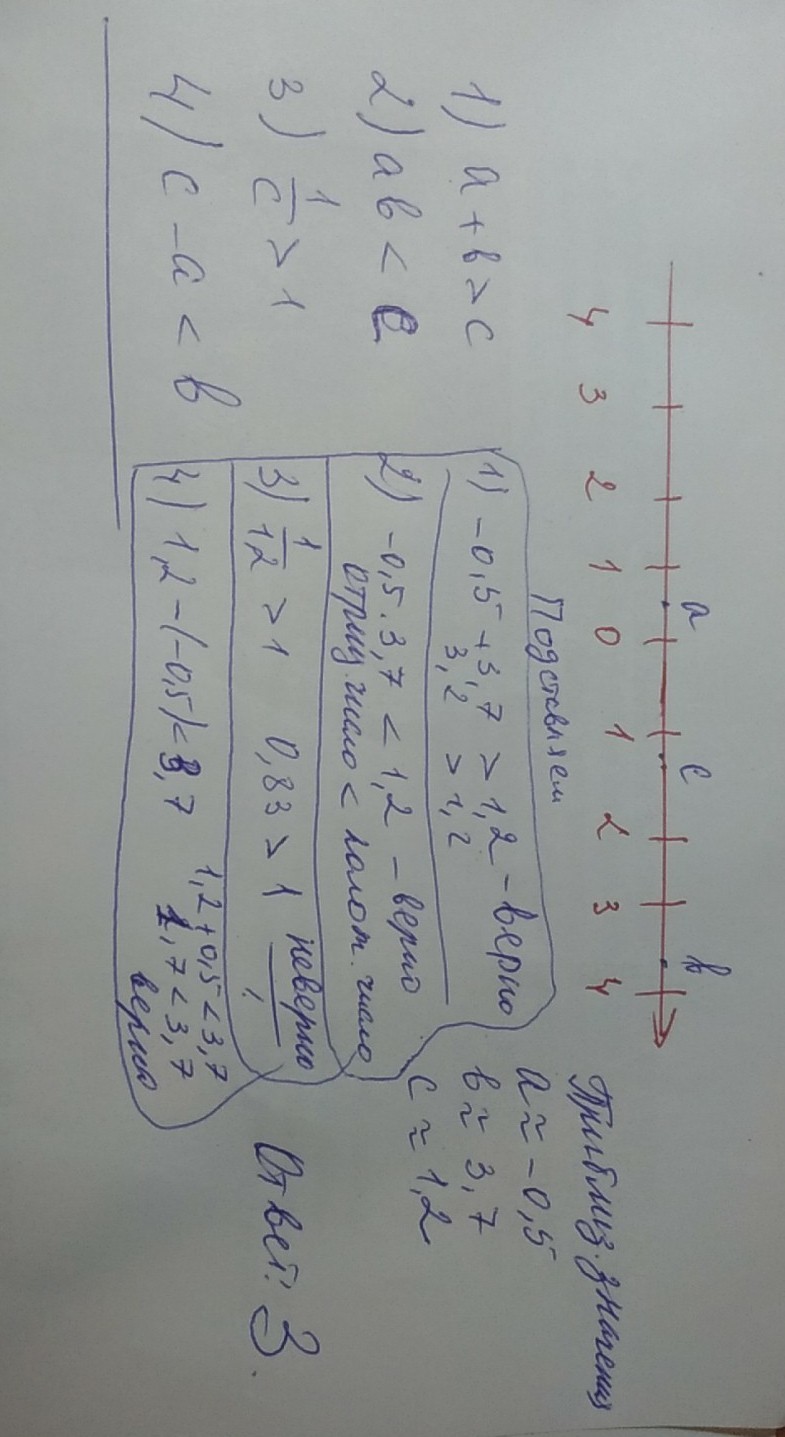 a c b
4 3 2 1 0 1 2 3 4
Приблиз. значения
a ≈ -0,5
в ≈ 3,7
c ≈ 1,2
Подставляем
1) a + в > c
2) a в < c
3) 1/c > 1
4) c - a < в
1) -0,5 + 3,7 > 1,2 - верно
3,2 > 1,2
2) -0,5 . 3,7 < 1,2 - верно
отриц. число < полож. число
3) 1/1,2 > 1 0,83 > 1 неверно!
4) 1,2 - (-0,5) < 3,7 1,2 + 0,5 < 3,7
1,7 < 3,7
верно
Ответ: 3.